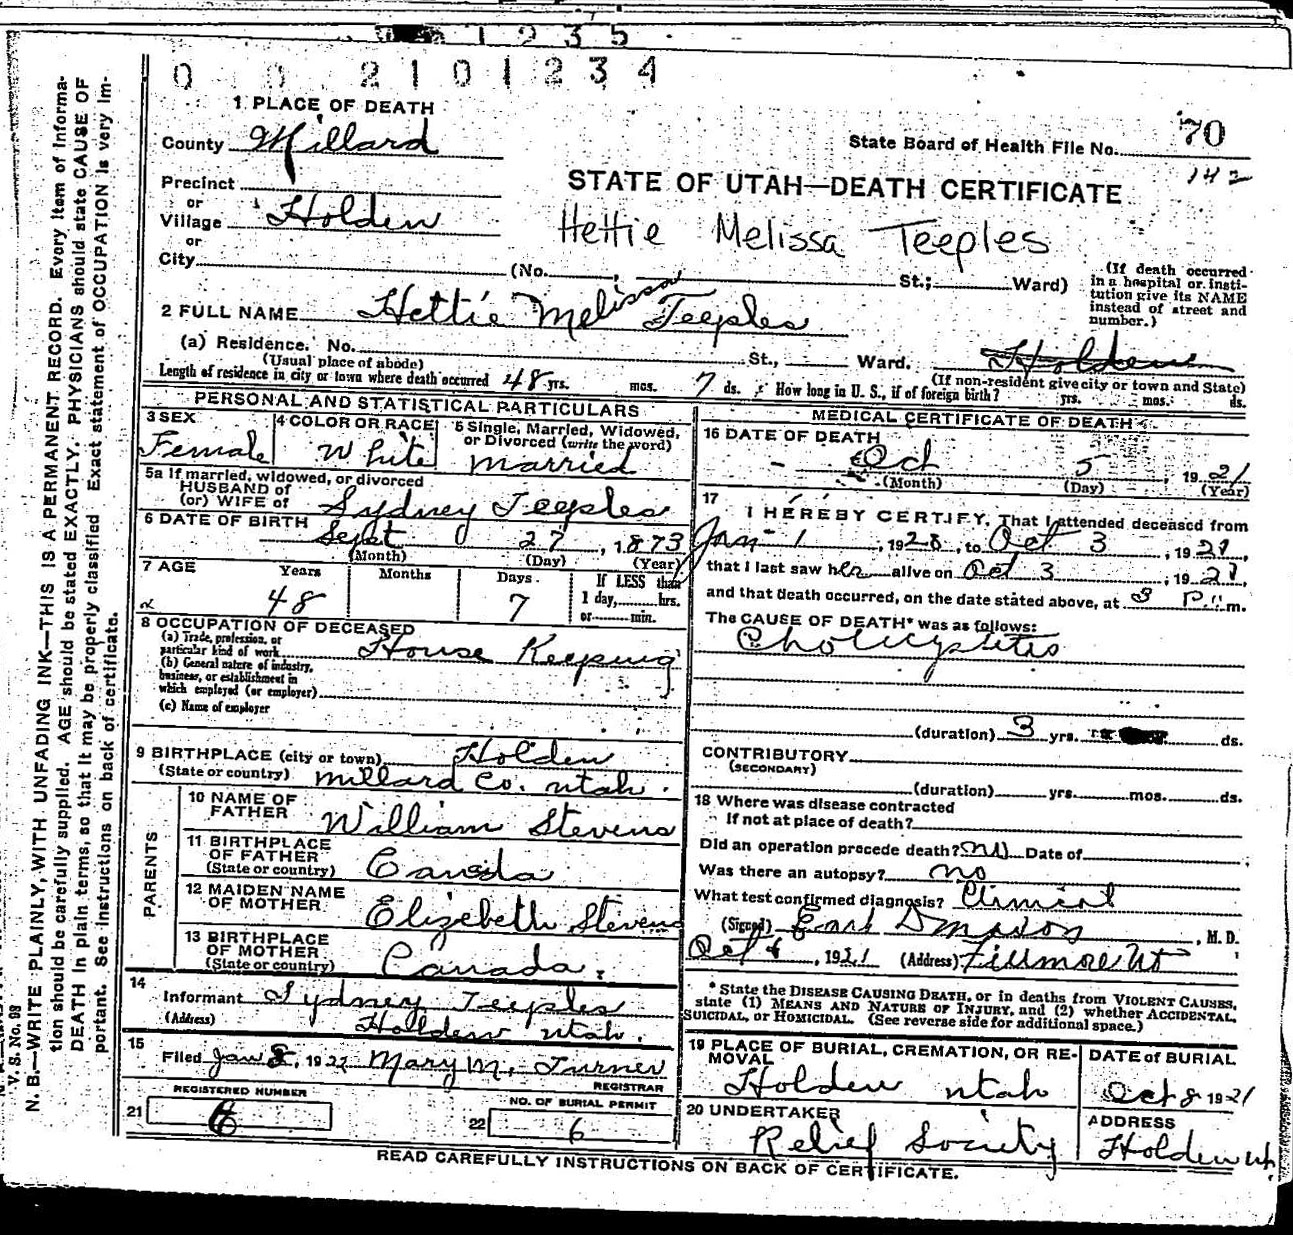 1 2 3 5
0 0 2 1 0 1 2 3 4
1 PLACE OF DEATH
County Millard
State Board of Health File No. 70
142
Precinct
or
Village Holden
or
City
STATE OF UTAH—DEATH CERTIFICATE
Hettie Melissa Teeples
(No. , St.; Ward)
(If death occurred in a hospital or insti-
tution give its NAME
instead of street and
number.)
2 FULL NAME Hettie Melissa Teeples
(a) Residence. No. St., Ward. Holden
(Usual place of abode)
(If non-resident give city or town and State)
Length of residence in city or town where death occurred 48 yrs. mos. 7 ds. How long in U. S., if of foreign birth? yrs. mos. ds.
PERSONAL AND STATISTICAL PARTICULARS
3 SEX
Female
4 COLOR OR RACE
White
5 Single, Married, Widowed,
or Divorced (write the word)
Married
5a If married, widowed, or divorced
HUSBAND OF
(or) WIFE of Sydney Teeples
6 DATE OF BIRTH
Sept 27, 1873
(Month) (Day) (Year)
7 AGE Years Months Days If LESS than
48 7 1 day, hrs.
or min.
8 OCCUPATION OF DECEASED
(a) Trade, profession, or
particular kind of work House Keeping
(b) General nature of industry,
business, or establishment in
which employed (or employer)
(c) Name of employer
9 BIRTHPLACE (city or town) Holden
(State or country) Millard Co. Utah.
PARENTS
10 NAME OF
FATHER William Stevens
11 BIRTHPLACE
OF FATHER
(State or country) Canada
12 MAIDEN NAME
OF MOTHER Elizebeth Stevens
13 BIRTHPLACE
OF MOTHER
(State or country) Canada.
14
Informant Sydney Teeples
(Address) Holden Utah.
15
Filed Jan 8, 1922 Mary M. Turner
REGISTRAR
REGISTERED NUMBER
21 6
NO. OF BURIAL PERMIT
22 6
MEDICAL CERTIFICATE OF DEATH
16 DATE OF DEATH
Oct 5 1921
(Month) (Day) (Year)
17
I HEREBY CERTIFY, That I attended deceased from
Jan 1, 192, to Oct 3, 1921,
that I last saw her alive on Oct 3, 1921,
and that death occurred, on the date stated above, at 3 P. m.
The CAUSE OF DEATH* was as follows:
Cholicystitis
(duration) 3 yrs. ds.
CONTRIBUTORY
(SECONDARY)
(duration) yrs. mos. ds.
18 Where was disease contracted
If not at place of death?
Did an operation precede death? no Date of
Was there an autopsy? no
What test confirmed diagnosis? Clinical
(Signed) Earl, M. D.
Oct 6, 1921 (Address) Fillmore Ut
* State the DISEASE CAUSING DEATH, or in deaths from VIOLENT CAUSES,
state (1) MEANS AND NATURE OF INJURY, and (2) whether ACCIDENTAL,
SUICIDAL, or HOMICIDAL. (See reverse side for additional space.)
19 PLACE OF BURIAL, CREMATION, OR RE-
MOVAL
Holden Utah
DATE of BURIAL
Oct 8 1921
20 UNDERTAKER
Relief Society
ADDRESS
Holden Ut.
READ CAREFULLY INSTRUCTIONS ON BACK OF CERTIFICATE.
V. S. No. 98
N. B.—WRITE PLAINLY, WITH UNFADING INK—THIS IS A PERMANENT RECORD. Every item of informa-
tion should be carefully supplied. AGE should be stated EXACTLY. PHYSICIANS should state CAUSE OF
DEATH in plain terms, so that it may be properly classified. Exact statement of OCCUPATION is very im-
portant. See instructions on back of certificate.